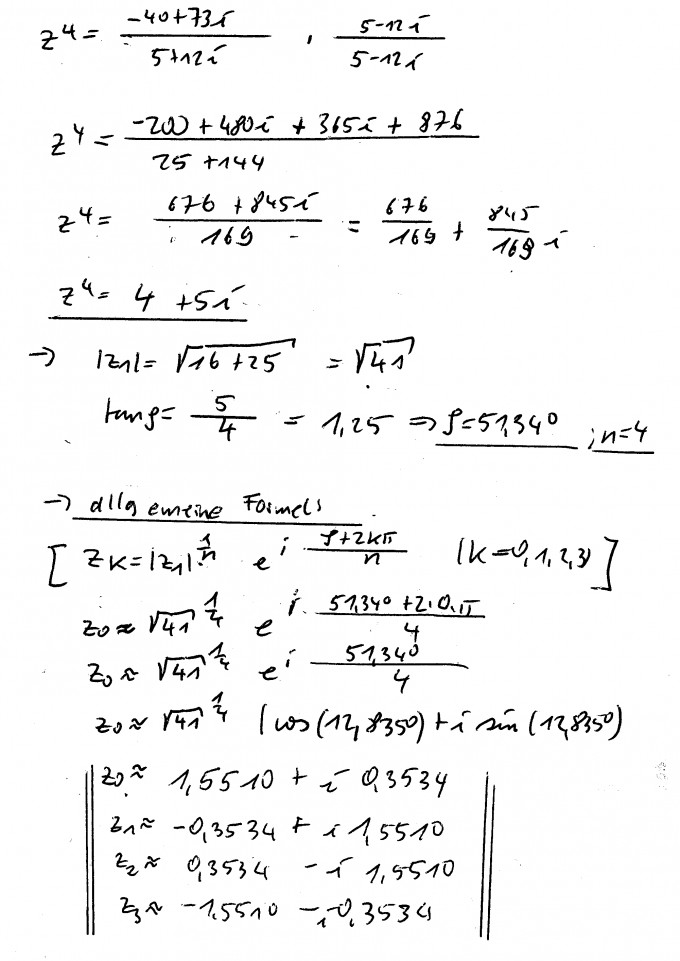 z⁴ = (-40+73i)/(5+12i) · (5-12i)/(5-12i)
z⁴ = (-200 + 480i + 365i + 876)/(25 + 144)
z⁴ = (676 + 845i)/169 = 676/169 + 845/169 i
z⁴ = 4 + 5i
→ |z1| = √(16+25) = √41
tanφ = 5/4 = 1,25 ⇒ φ=51,34° ; n=4
→ allgemeine Formel:
[ zK = |z1|^(1/n) e^(i (φ+2kπ)/n) (K=0,1,2,3) ]
z0 ≈ √41^(1/4) e^(i · (51,34° + 2·0·π)/4)
z0 ≈ √41^(1/4) e^(i · 51,34°/4)
z0 ≈ √41^(1/4) (cos(12,835°) + i sin(12,835°)
z0 ≈ 1,5510 + i 0,3534
z1 ≈ -0,3534 + i 1,5510
z2 ≈ 0,3534 - i 1,5510
z3 ≈ -1,5510 - i 0,3534